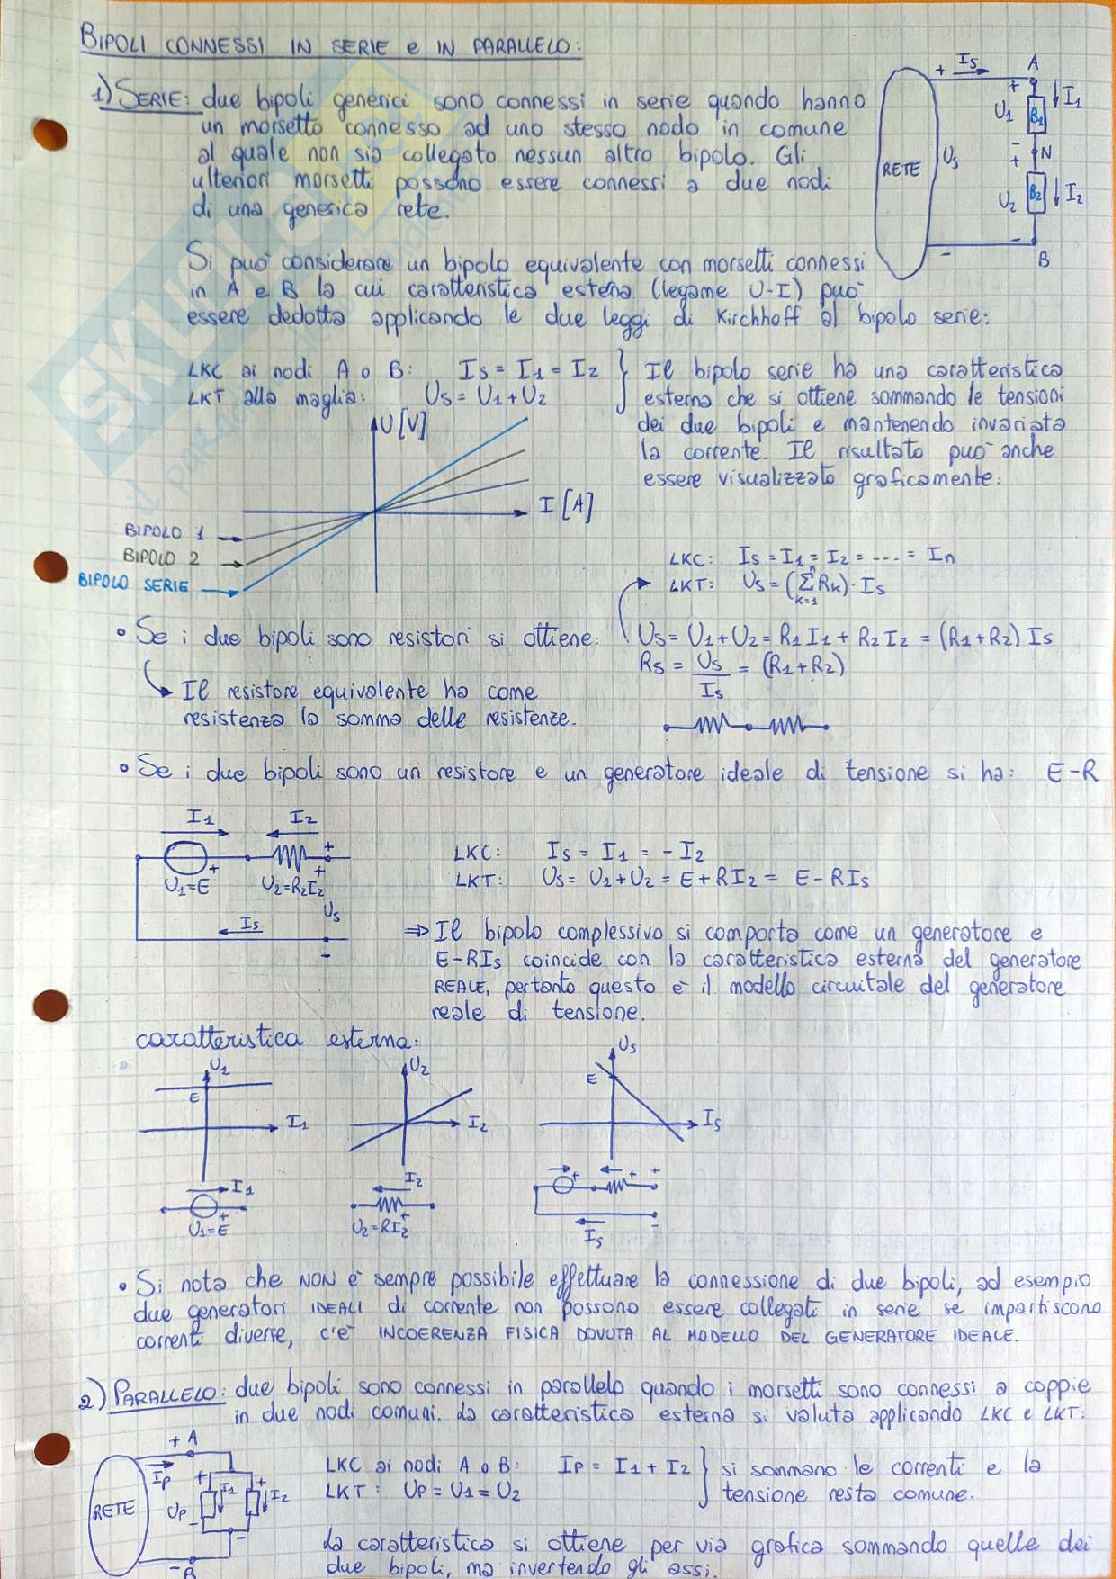 BIPOLI CONNESSI IN SERIE e IN PARALLELO:
1) SERIE: due bipoli generici sono connessi in serie quando hanno
un morsetto connesso ad uno stesso nodo in comune
al quale non sia collegato nessun altro bipolo. Gli
ulteriori morsetti possono essere connessi a due nodi
di una generica rete.
+ Is A
+ I1
U1 B1
-
RETE Us N
+
U2 B2 I2
-
- B
Si può considerare un bipolo equivalente con morsetti connessi
in A e B la cui caratteristica esterna (legame U-I) può
essere dedotta applicando le due leggi di Kirchhoff al bipolo serie:
LKC ai nodi A o B: Is = I1 = I2
LKT alla maglia: Us = U1 + U2
Il bipolo serie ha una caratteristica
esterna che si ottiene sommando le tensioni
dei due bipoli e mantenendo invariata
la corrente. Il risultato può anche
essere visualizzato graficamente:
U [V]
I [A]
BIPOLO 1
BIPOLO 2
BIPOLO SERIE
LKC: Is = I1 = I2 = ---- = In
LKT: Us = (∑ k=1 n Rk) · Is
• Se i due bipoli sono resistori si ottiene: Us = U1 + U2 = R1 I1 + R2 I2 = (R1+R2) Is
Rs = Us/Is = (R1+R2)
Il resistore equivalente ha come
resistenza la somma delle resistenze.
• Se i due bipoli sono un resistore e un generatore ideale di tensione si ha: E-R
I1 I2
+ +
U1=E U2=R2I2
+
Us
Is
-
LKC: Is = I1 = - I2
LKT: Us = U1 + U2 = E + RI2 = E - RIs
⇒ Il bipolo complessivo si comporta come un generatore e
E-RIs coincide con la caratteristica esterna del generatore
REALE, pertanto questo è il modello circuitale del generatore
reale di tensione.
caratteristica esterna:
U1 U2 Us
E E
I1 I2 Is
I1 I2
+ + + +
U1=E U2=RI2
-
Is
• Si nota che NON è sempre possibile effettuare la connessione di due bipoli, ad esempio
due generatori IDEALI di corrente non possono essere collegati in serie se impartiscono
correnti diverse, c'è INCOERENZA FISICA DOVUTA AL MODELLO DEL GENERATORE IDEALE.
2) PARALLELO: due bipoli sono connessi in parallelo quando i morsetti sono connessi a coppie
in due nodi comuni. La caratteristica esterna si valuta applicando LKC e LKT:
+ A
Ip
RETE Up + I1 + I2
- -
- B
LKC ai nodi A o B: Ip = I1 + I2
LKT: Up = U1 = U2
si sommano le correnti e la
tensione resta comune.
La caratteristica si ottiene per via grafica sommando quelle dei
due bipoli, ma invertendo gli assi.